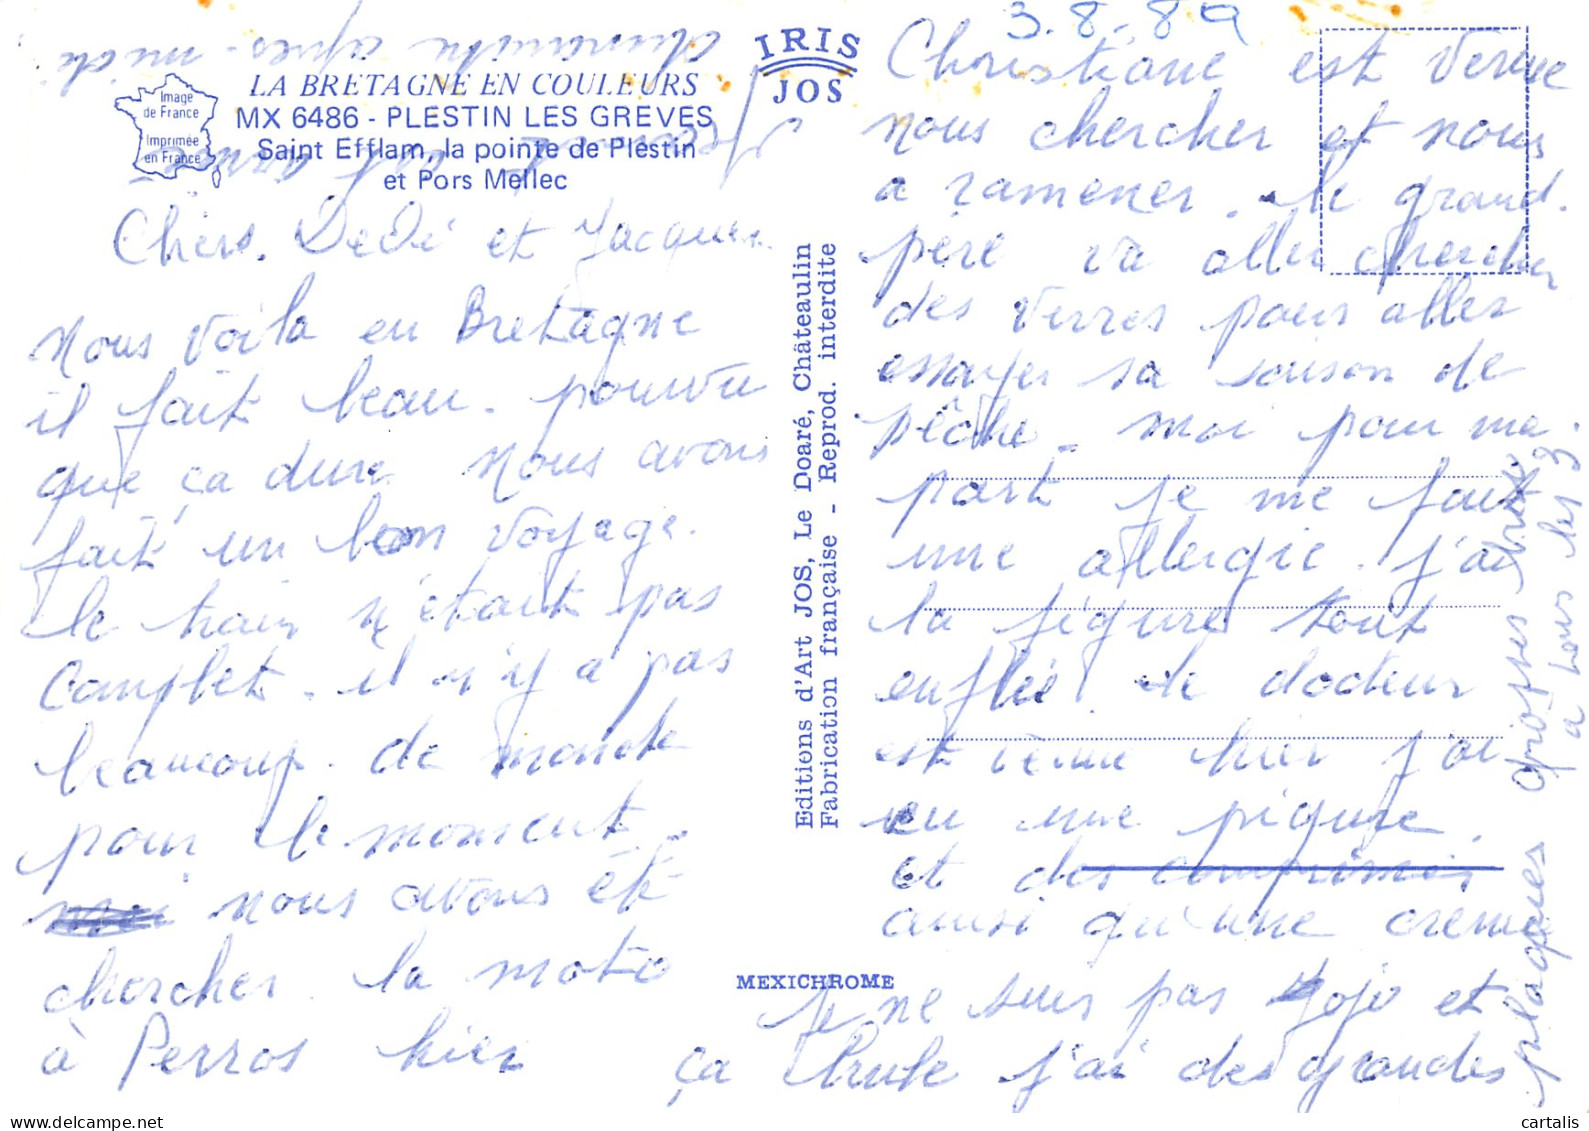 3.8.89
IRIS
JOS
Image
de France
Imprimée
en France
LA BRETAGNE EN COULEURS
MX 6486 - PLESTIN LES GREVES
Saint Efflam, la pointe de Plestin
et Pors Mellec
Chers. Dédé et Jacques.
Nous voila en Bretagne
il fait beau. pourvu
que ça dure Nous avons
fait un bon voyage.
le train n'était pas
complet. il n'y a pas
beaucoup. de monde
pour le moment.
nous avons été
chercher la moto
à Perros hier
Editions d'Art JOS, Le Doaré, Châteaulin
Fabrication française - Reprod. interdite
MEXICHROME
Christiane est venue
nous chercher et nous
a ramener. le grand.
père va aller chercher
des verres pour aller
essayer sa saison de
pêche. moi pour ma.
part je me fait
une allergie. j'ai
la figure tout
enflée. le docteur
est venue hier j'ai
eu une piqure.
et des comprimés
ainsi qu'une crème
Je ne suis pas jojo et
ça brule j'ai des grandes
plaques grosses bises
a tous les 3
dimanche après-midi